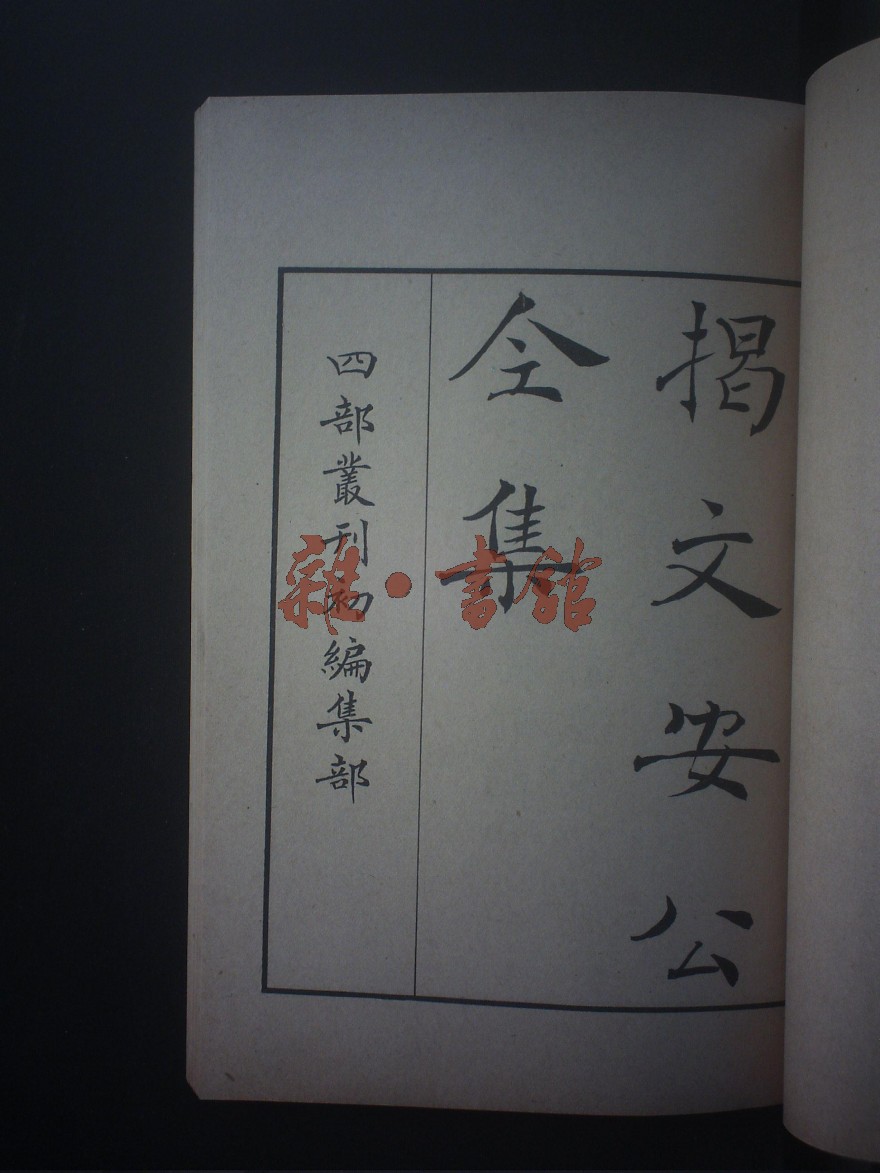 揭文安公
全集
四部叢刊初編集部
雜·書館